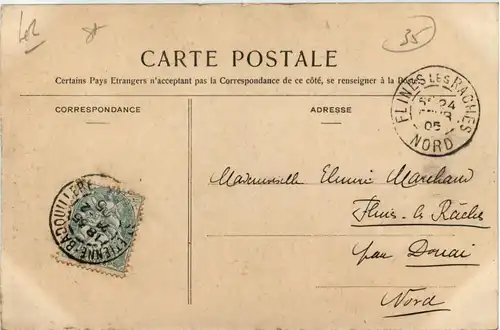 35
CARTE POSTALE
Certains Pays Etrangers n'acceptant pas la Correspondance de ce côté, se renseigner à la Poste
CORRESPONDANCE
ADRESSE
FLINES LES RACHES
24
05
NORD
ETIENNE-BADOUILLERE
Mademoiselle Elmire Marchand
Flines-les Râches
par Douai
Nord